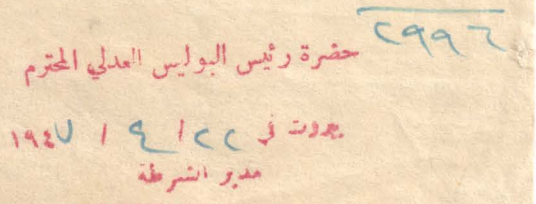 ٢٩٩٦
حضرة رئيس البوليس العدلي المحترم
بيروت في ٢٢ / ٤ / ١٩٤٧
مدير الشرطة